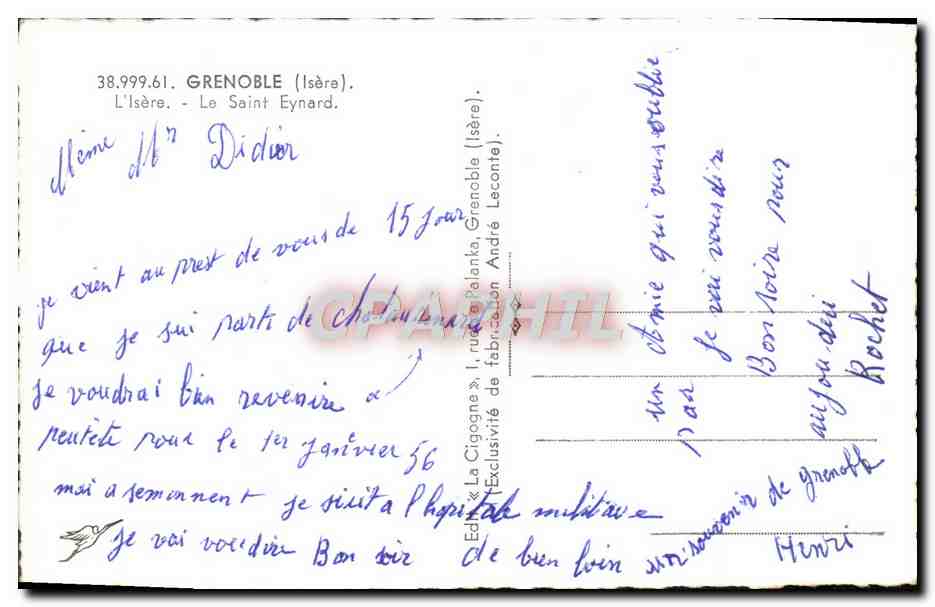 38.999.61. GRENOBLE (Isère).
L'Isère. - Le Saint Eynard.
Mème Mr Didier
je vient au prest de vous de 15 jour
que je sui parti de chateaurenard
je voudrai bien revenire a
peutète pour le 1er janvier 56
mai a semonnent je suit a l'hopitale militave
je vai voudire Bon soir de bien loin
Edit. « La Cigogne », 1, rue Palanka, Grenoble (Isère).
(Exclusivité de fabrication André Leconte).
CPAPHIL
un Amie qui vous oublie
pas je vai vous dire
Bon soire pour
aujoudui
Rochet
Henri
un souvenir de grenoble